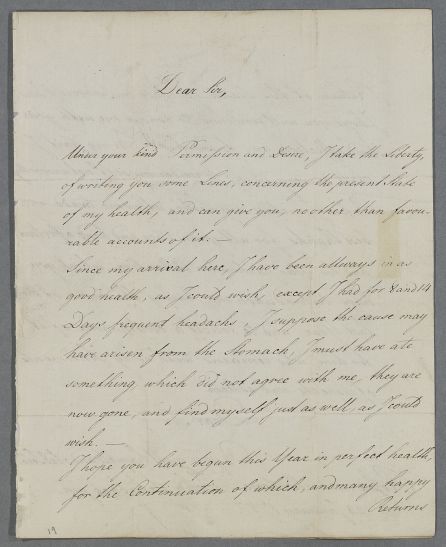 Dear Sir,
Under your kind Permission and Desire, I take the Liberty,
of writing you some Lines, concerning the present State
of my health, and can give you, no other than favou-
rable accounts of it. —
Since my arrival here, I have been allways in as
good health, as I could wish, except I had for 8 and 14
Days frequent headachs, I suppose the cause may
have arisen from the Stomach, I must have ate
something which did not agree with me, they are
now gone, and find myself just as well, as I could
wish. —
I hope you have begun this Year in perfect health,
for the Continuation of which, and many happy
Returns
19